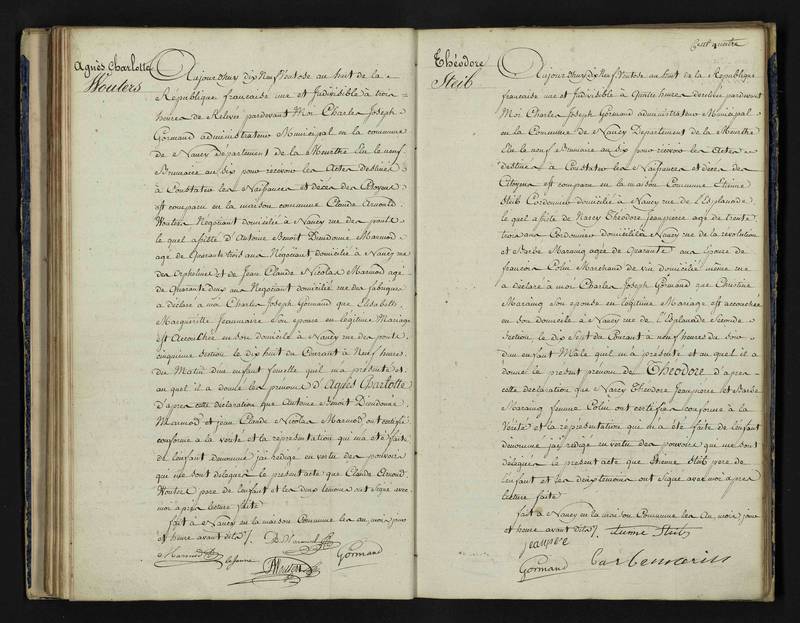 Agnès Charlotte
Wouters
Aujourd'huy dix Neuf Ventose an huit de la
République française une et Indivisible à trois
heures de Relevée pardevant Moi Charles Joseph
Gormand administrateur Municipal en la commune
de Nancy Département de la Meurthe Elu le neuf
Brumaire an six pour recevoir les Actes destinés
à Constater les Naissances et décès des Citoyens
est comparu en la maison commune Claude Arnould
Wouters Négociant domicilié à Nancy rue des ponts
le quel assisté d'Antoine Benoit Dieudonné Marmod
age de Quarante trois ans Négociant domicilié à Nancy rue
des Orphelines et de Jean Claude Nicolas Marmod agé
de Quarante deux ans Négociant domicilié rue des fabriques
a déclaré a moi Charles Joseph Gormand que Elisabeth
Margueritte Jeanmaire Son epouse en légitime Mariage
est Accouchée en son domicile à Nancy rue des ponts
cinquieme Section le dix huit du Courant à Neuf heures
du Matin d'un enfant femelle quil ma présenté et
au quel il a donné les prenoms d'Agnès Charlotte
D'apres cette déclaration que Antoine Benoit Dieudonné
Marmod et jean Claude Nicolas Marmod ont certifié
conforme à la verité et la representation qui m'a été faite
de lenfant dénommé j'ai redigé en vertu des pouvoirs
qui me sont délégués le present acte que Claude Arnould
Wouters pere de lenfant et les deux temoins ont Signé avec
moi après lecture faite
fait à Nancy en la maison Commune les an, mois jour
et heure avant dits /.
B. Marmod
Marmod le jeune
Gormand
Cent quatre
Théodore
Steib
Aujourdhuy dix Neuf Ventose an huit de la République
française une et Indivisible à Quatre heures de relevée pardevant
Moi Charles Joseph Gormand administrateur Municipal
en la Commune de Nancy Département de la Meurthe
Elu le neuf Brumaire an six pour recevoir les Actes
destinés à Constater les Naissances et décès des
Citoyens est comparu en la maison Commune Etienne
Steib Cordonnier domicilié à Nancy rue de L'Esplanade
le quel assisté de Narcy Théodore Jeanpierre agé de trente
trois ans Cordonnier domicilié à Nancy rue de la révolution
et Barbe Maraing agée de Quarante ans Epouse de
francois Colin Marchand de vin domicilié même rue
a déclaré à moi Charles Joseph Gormand que Christine
Maraing Son epouse en légitime Mariage est accouchée
en son domicile à Nancy rue de l'Esplanade Seconde
Section le dix Sept du Courant à neuf heures du Soir
d'un enfant Male quil m'a présenté et au quel il a
donné le present prenom de Théodore d'apres
cette déclaration que Narcy Théodore Jeanpierre et Barbe
Maraing femme Colin ont certifié conforme à la
Vérité et la représentation qui m'a eté faite de lenfant
dénommé jai redigé en vertu des pouvoirs qui me sont
délégués le present acte que Etienne Steib pere de
lenfant et les deux temoins ont Signé avec moi apres
lecture faite
fait à Nancy en la maison Commune les An, mois, jour
et heure avant dits /.
Steib
Gormand